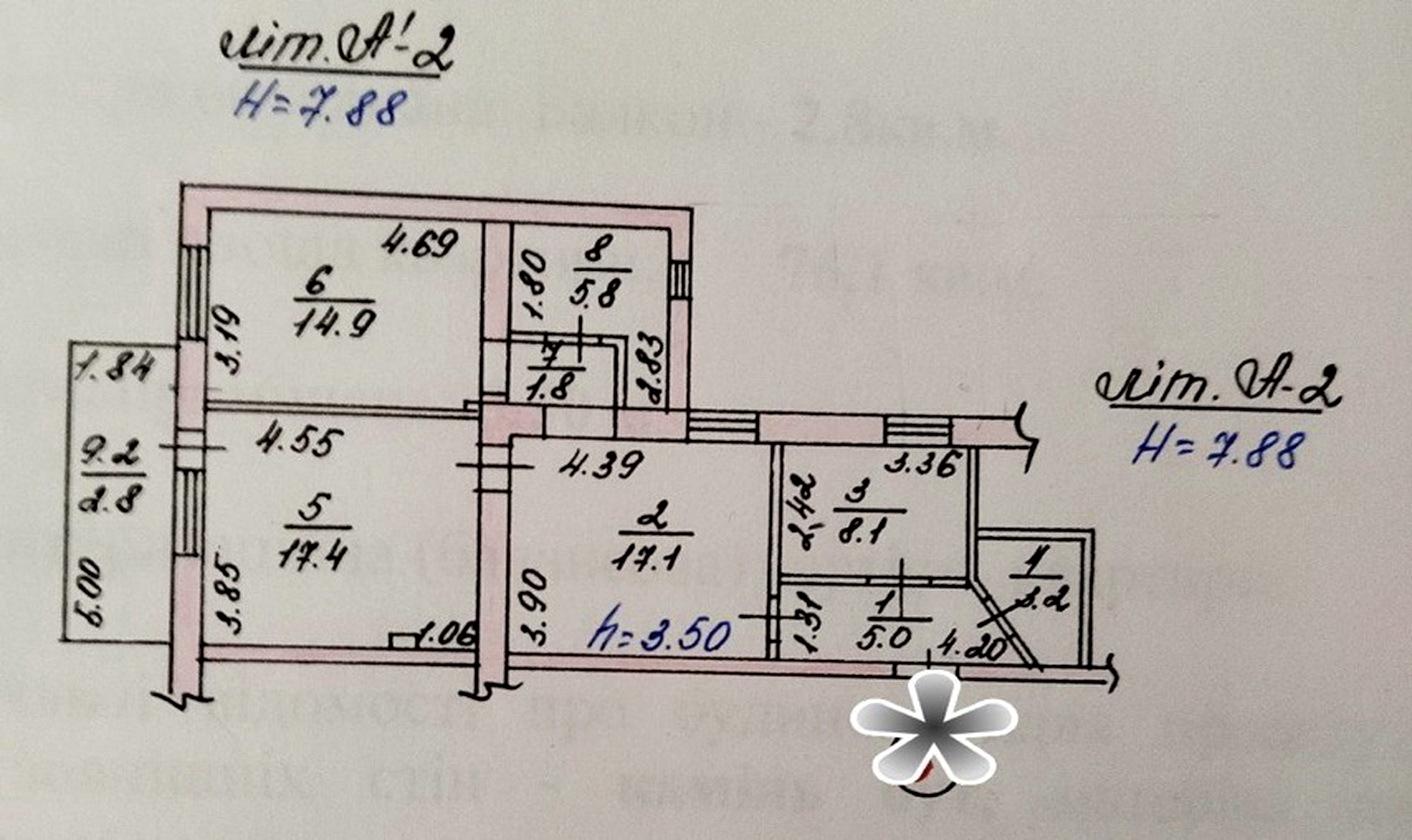 літ. А'-2
H=7.88
4.69
6
14.9
3.19
1.80
8
5.8
7
1.8
2.83
1.84
9.2
2.8
5.00
4.55
5
17.4
3.85
1.06
4.39
2
17.1
3.90
h=3.50
3.36
2.42
3
8.1
1.31
1
5.0
4.20
1
3.2
літ. А-2
H=7.88
балкон 2.8кв.м